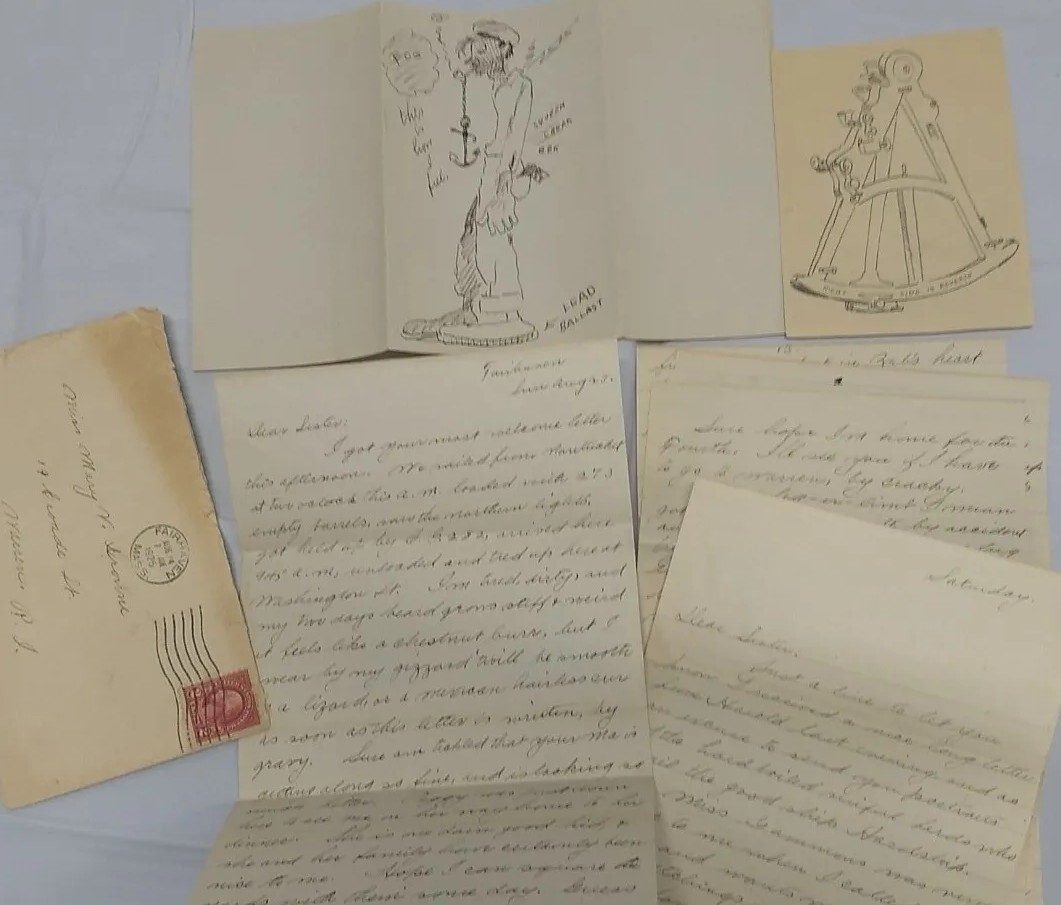 FOO
this is
how
I
feel.
LEAD
BALLAST
RIGHT SIDE IN REVERSE
Miss Mary V.
St.
Warren R. I.
FAIRHAVEN
1925
MASS.
Fairhaven
Dear Sister:
I got your most welcome letter
this afternoon. We sailed from Nantucket
at two oclock this a.m. loaded with 273
empty barrels, saw the northern lights,
got held up by C.G. 282, arrived here
a.m., unloaded and tied up here at
Washington St. I'm tired, dirty, and
my two days beard grows stiff & weird
it feels like a chestnut burr, but I
swear by my gizzard 'twill be smooth
a lizard or a mexican hairless cur
as soon as this letter is written, by
gravy. Sure am tickled that your Ma is
getting along so fine, and is looking so
much better. Peggy was just down
here to see me on her way home to her
dinner. She is one darn good kid, &
she and her family have certainly been
nice to me. Hope I can square the
with them some day. Guess
13
in heart
Sure hope I'm home for the
Fourth. I'll see you if I have
to go to Warren, by cracky.
I mean
it by accident
Saturday.
Dear Sister,
Just a line to let you
know I received a nice long letter
from Harold last evening and as
an excuse to send you pictures
the hard boiled birds who
the good ship Hazeltrip.
Miss Gammons was
to me when I called
and wants